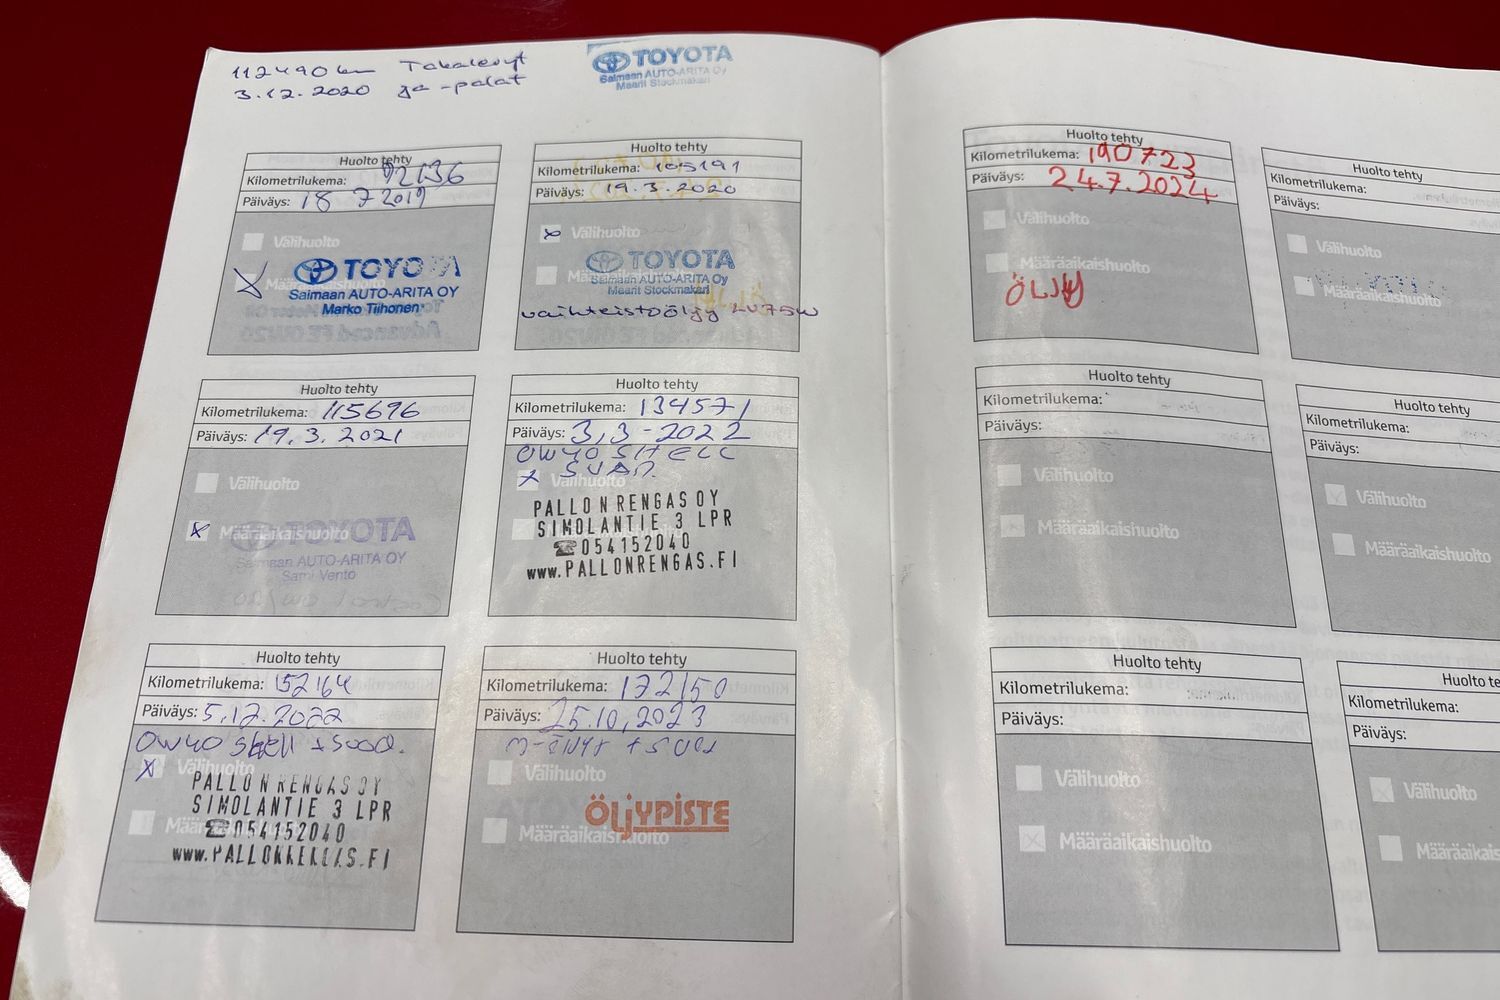 112490 km Takalevyt
3.12.2020 ja -palat
TOYOTA
Saimaan AUTO-ARITA Oy
Maarit Stockmakari
Huolto tehty
Kilometrilukema: 92136
Päiväys: 18 7 2019
Välihuolto
Määräaikaishuolto
TOYOTA
Saimaan AUTO-ARITA OY
Marko Tiihonen
Huolto tehty
Kilometrilukema: 105191
Päiväys: 19.3.2020
x Välihuolto
Määräaikaishuolto
TOYOTA
Saimaan AUTO-ARITA Oy
Maarit Stockmakari
vaihteistoöljy LV75W
Huolto tehty
Kilometrilukema: 115696
Päiväys: 19.3.2021
Välihuolto
x Määräaikaishuolto
TOYOTA
Saimaan AUTO-ARITA OY
Sami Vento
Huolto tehty
Kilometrilukema: 134571
Päiväys: 3,3-2022
0W40 SHELL
+ SUOD.
x Välihuolto
PALLON RENGAS OY
SIMOLANTIE 3 LPR
☎054152040
www.PALLONRENGAS.FI
Huolto tehty
Kilometrilukema: 152164
Päiväys: 5.12.2022
0W40 Shell + Suod.
x Välihuolto
Määräaikaishuolto
PALLON RENGAS OY
SIMOLANTIE 3 LPR
☎054152040
www.PALLONRENGAS.FI
Huolto tehty
Kilometrilukema: 172150
Päiväys: 25.10,2023
Välihuolto
Määräaikaishuolto
ÖLJYPISTE
Huolto tehty
Kilometrilukema: 190723
Päiväys: 24.7.2024
Välihuolto
Määräaikaishuolto
ÖLJY
Huolto tehty
Kilometrilukema:
Päiväys:
Välihuolto
Määräaikaishuolto
Huolto tehty
Kilometrilukema:
Päiväys:
Välihuolto
Määräaikaishuolto
Huolto tehty
Kilometrilukema:
Päiväys:
Välihuolto
Määräaikaishuolto
Huolto tehty
Kilometrilukema:
Päiväys:
Välihuolto
Määräaikaishuolto
Huolto te
Kilometrilukema:
Päiväys:
Välihuolto
Määräaikais